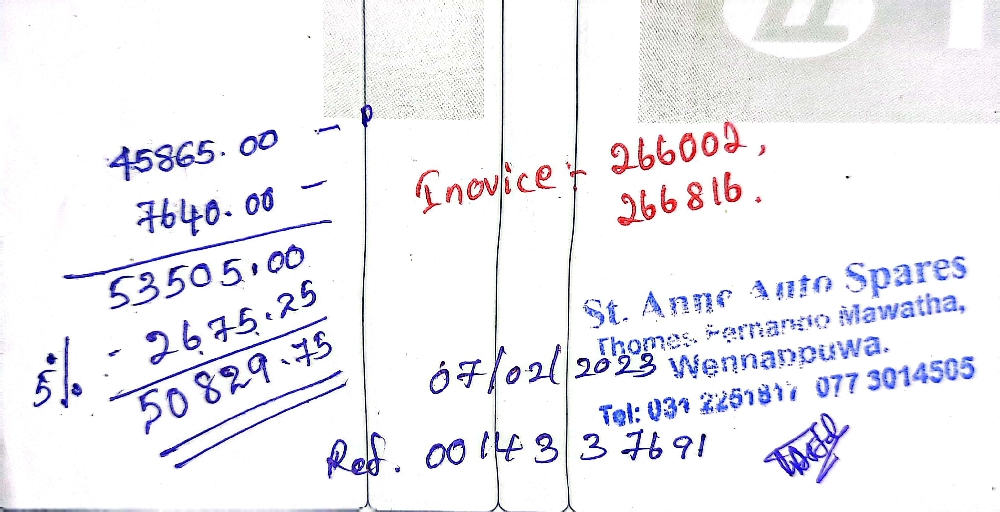 45865.00 -
7640.00 -
53505.00
5% - 2675.25
50829.75
Inovice :- 266002,
266816.
St. Anne Auto Spares
Thomas Fernando Mawatha,
Wennappuwa.
Tel: 031 2251817 077 3014505
07/02/2023
Ref. 0014337691